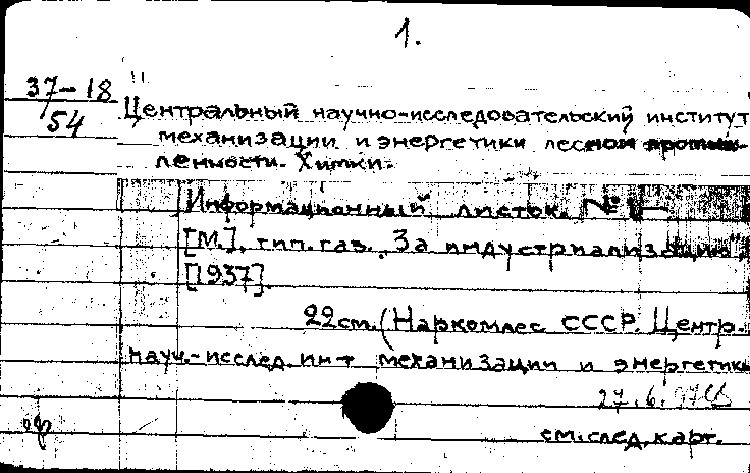 1.
37-18
54
Центральный научно-исследовательский институт
механизации и энергетики лесной промыш-
ленности. Химки.
Информационный листок. №
[М.], тип. газ. "За индустриализацию",
[1937].
22 см. (Наркомлес СССР. Центр.
науч.-исслед. ин-т механизации и энергетики
27.6.
см. след. карт.